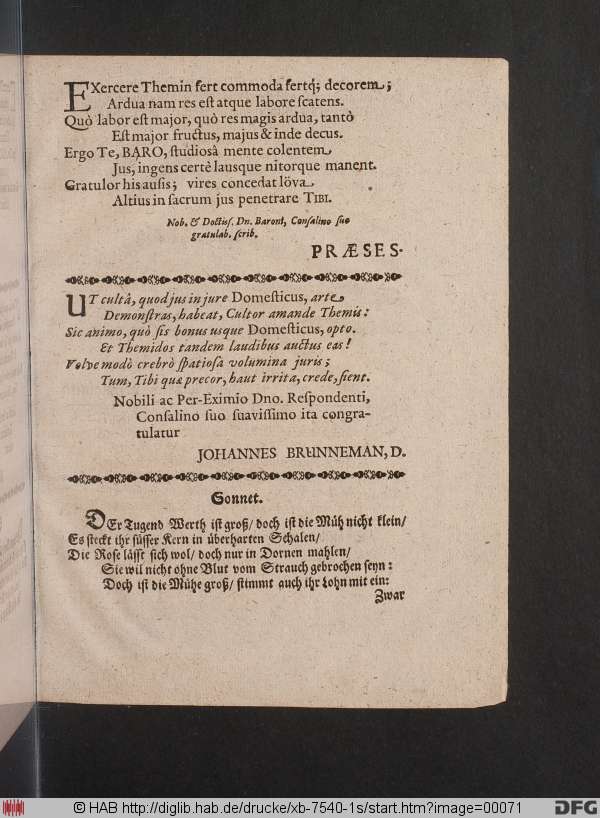 EXercere Themin fert commoda fertq́; decorem;
Ardua nam res eſt atque labore ſcatens.
Quò labor eſt major, quò res magis ardua, tantò
Eſt major fructus, majus & inde decus.
Ergo Te, BARO, ſtudiosâ mente colentem
Jus, ingens certè lausque nitorque manent.
Gratulor his auſis; vires concedat Iöva
Altius in ſacrum jus penetrare TIBI.
Nob. & Doctiſſ. Dn. Baroni, Conſalino ſuo
gratulab. ſcrib.
PRÆSES.
UT cultâ, quod jus in jure Domeſticus, arte
Demonſtras, habeat, Cultor amande Themis:
Sic animo, quò ſis bonus usque Domeſticus, opto.
Et Themidos tandem laudibus auctus eas!
Volve modò crebrò ſpatioſa volumina juris;
Tum, Tibi quæ precor, haut irrita, crede, fient.
Nobili ac Per-Eximio Dno. Reſpondenti,
Conſalino ſuo ſuaviſſimo ita congra-
tulatur
JOHANNES BRUNNEMAN, D.
Sonnet.
DEr Tugend Werth iſt groß/ doch iſt die Müh nicht klein/
Es ſteckt ihr ſüſſer Kern in überharten Schalen/
Die Roſe läſſt ſich wol/ doch nur in Dornen mahlen/
Sie wil nicht ohne Blut vom Strauch gebrochen ſeyn:
Doch iſt die Mühe groß/ ſtimmt auch ihr Lohn mit ein:
Zwar
© HAB http://diglib.hab.de/drucke/xb-7540-1s/start.htm?image=00071
DFG